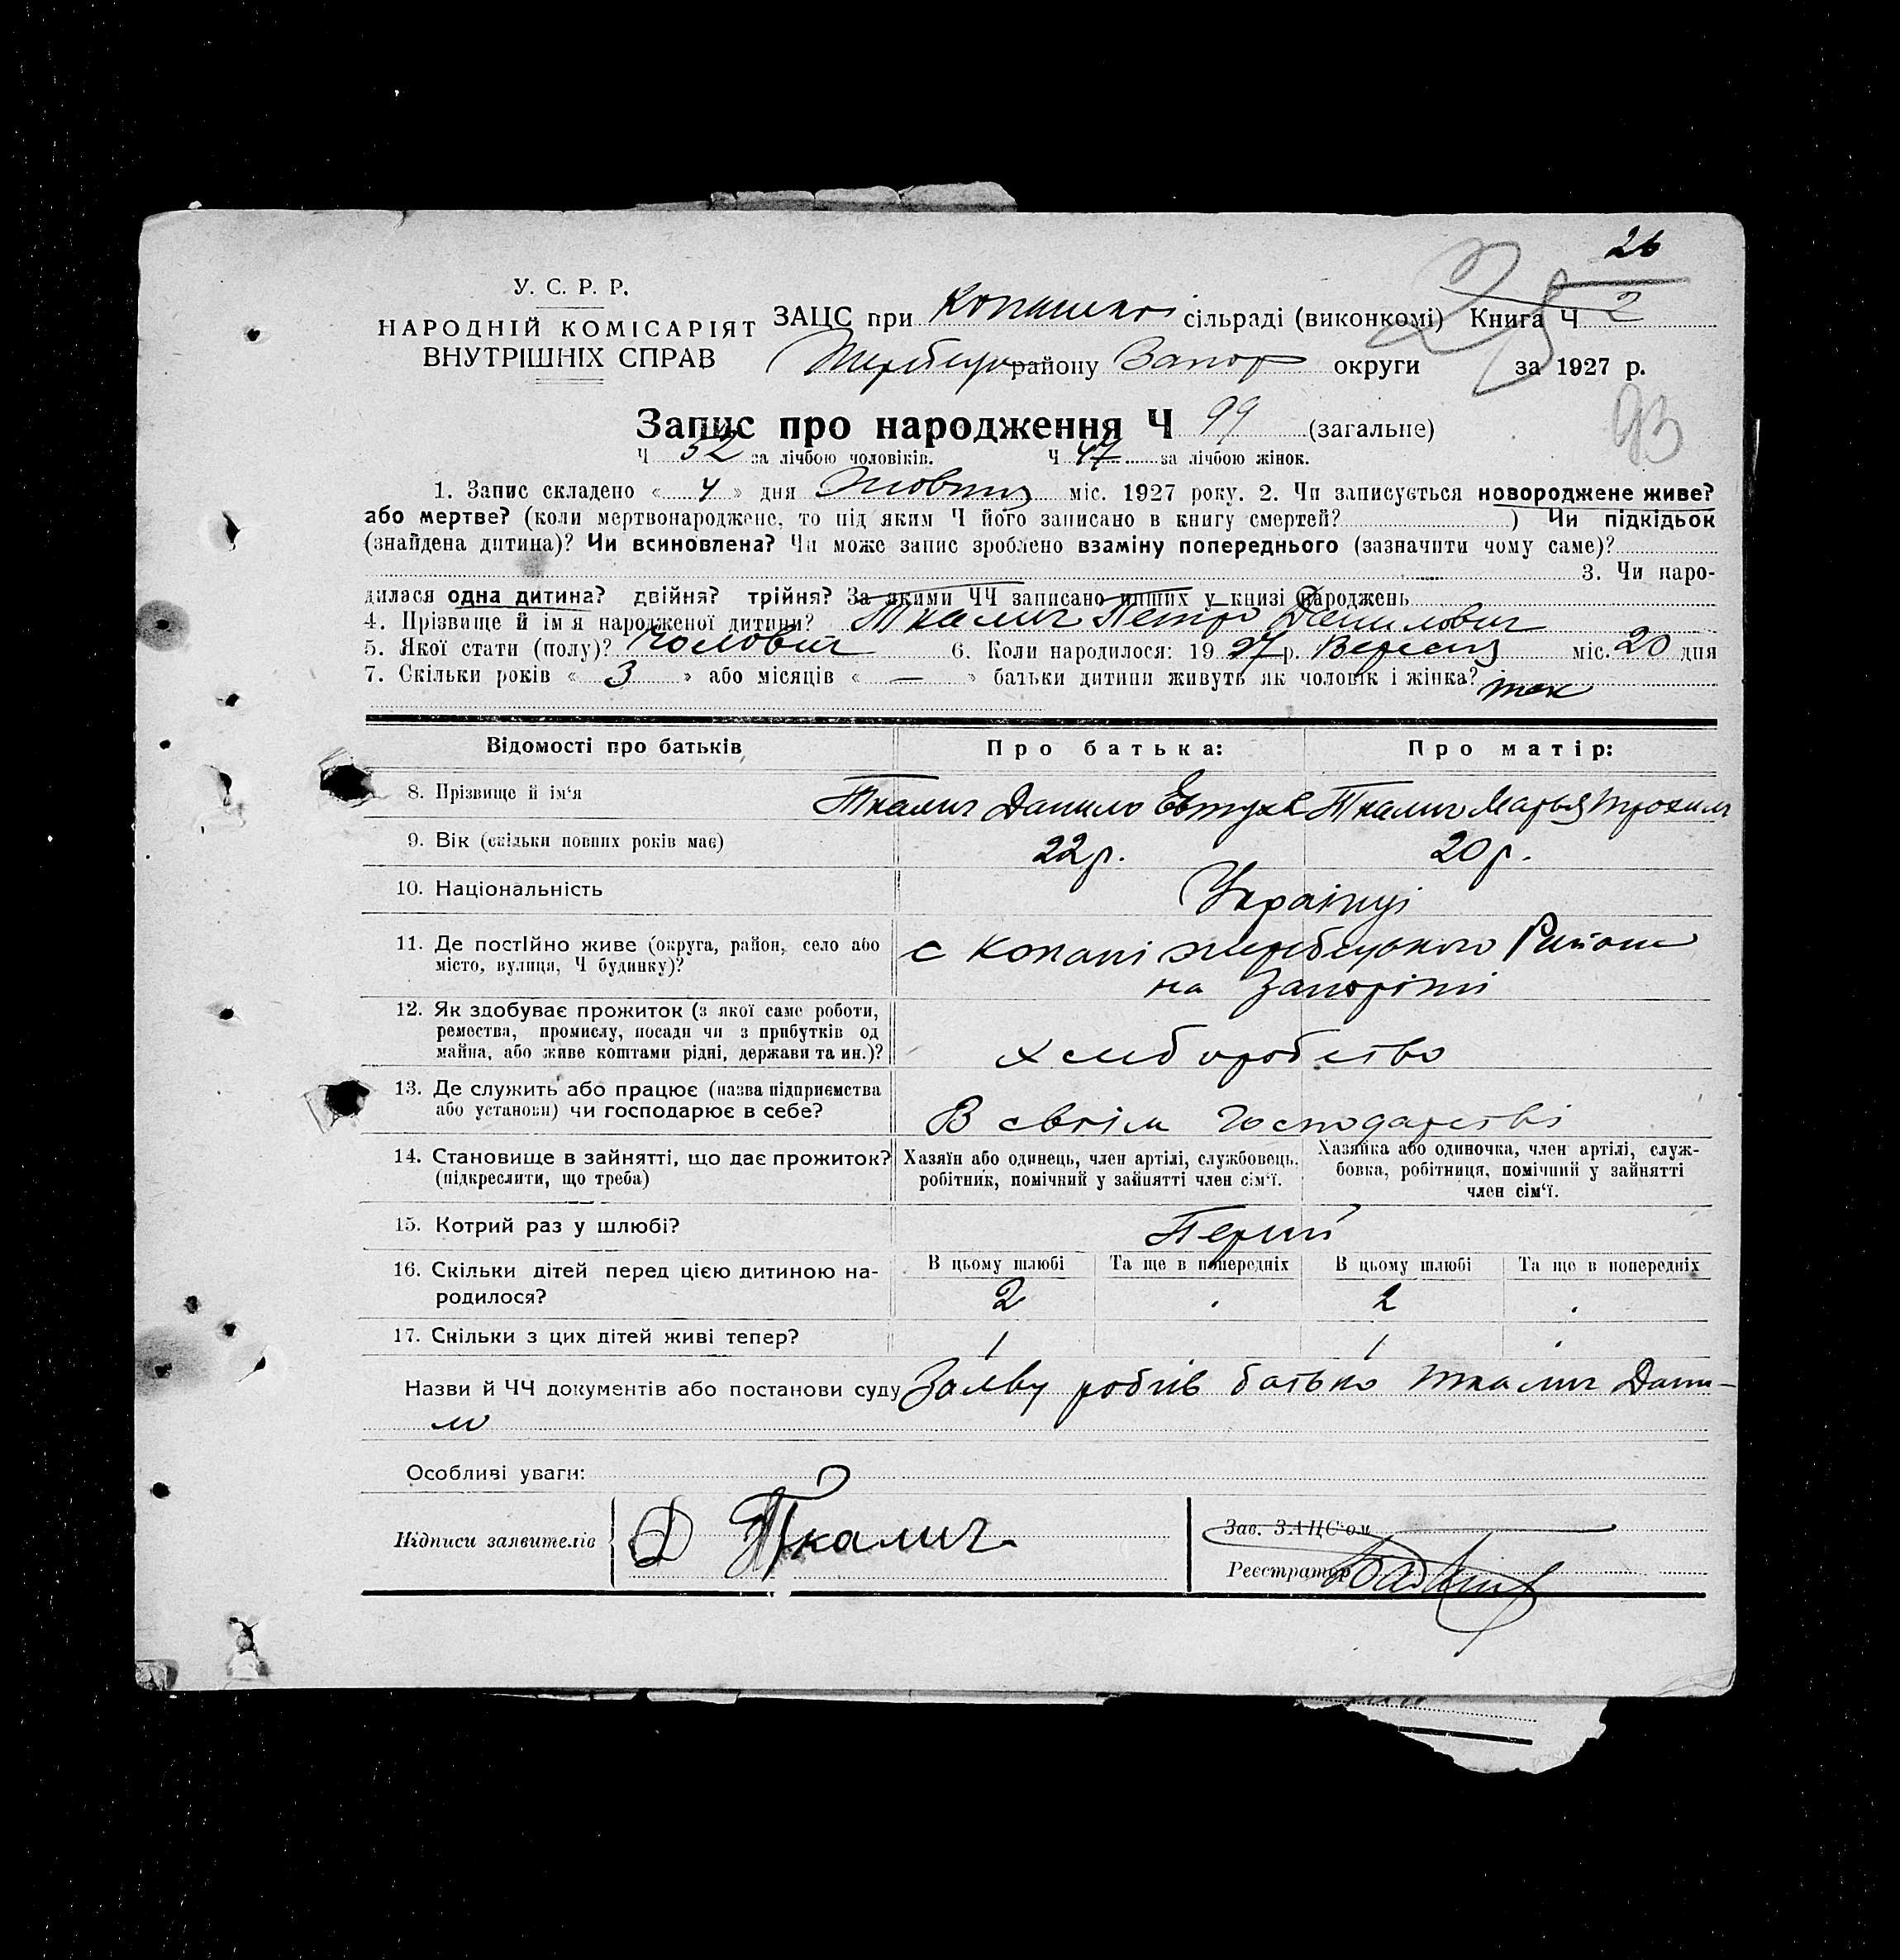 26
У. С. Р. Р.
НАРОДНІЙ КОМІСАРІЯТ
ВНУТРІШНІХ СПРАВ
ЗАЦС при Копанські сільраді (виконкомі) Книга Ч 2
Жеребецр району Запор округи за 1927 р.
25
93
Запис про народження Ч 99 (загальне)
Ч 52 за лічбою чоловіків. Ч 47 за лічбою жінок.
1. Запис складено « 4 » дня Жовтня міс. 1927 року. 2. Чи записується новороджене живе?
або мертве? (коли мертвонароджене, то під яким Ч його записано в книгу смертей? ) Чи підкідьок
(знайдена дитина)? Чи всиновлена? Чи може запис зроблено взаміну попереднього (зазначити чому саме)?
3. Чи наро-
дилася одна дитина? двійня? трійня? За якими ЧЧ записано инших у книзі народжень
4. Прізвище й ім'я народженої дитини? Ткалич Петро Данилович
5. Якої стати (полу)? Чоловіч 6. Коли народилося: 19 27 р. Вересня міс. 20 дня
7. Скільки років « 3 » або місяців « — » батьки дитини живуть як чоловік і жінка? так
Відомості про батьків Про батька: Про матір:
8. Прізвище й ім'я Ткалич Данило Евтух Ткалич Марья Трохим
9. Вік (скільки повних років має) 22 р. 20 р.
10. Національність Українці
11. Де постійно живе (округа, район, село або с Копані жеребецького Району
місто, вулиця, Ч будинку)? на Запоріжжі
12. Як здобуває прожиток (з якої саме роботи,
ремества, промислу, посади чи з прибутків од
майна, або живе коштами рідні, держави та ин.)? хліборобство
13. Де служить або працює (назва підприємства
або установи) чи господарює в себе? В своїм господарстві
14. Становище в зайнятті, що дає прожиток? Хазяїн або одинець, член артілі, службовець, Хазяйка або одиночка, член артілі, служ-
(підкреслити, що треба) робітник, помічний у зайнятті член сім'ї. бовка, робітниця, помічний у зайнятті
член сім'ї.
15. Котрий раз у шлюбі? Перший
16. Скільки дітей перед цією дитиною на- В цьому шлюбі Та ще в попередніх В цьому шлюбі Та ще в попередніх
родилося? 2 2
17. Скільки з цих дітей живі тепер? 1 1
Назви й ЧЧ документів або постанови суду Заяву робив батько Ткалич Дани-
ло
Особливі уваги:
Підписи заявителів Д Ткалич
Зав. ЗАЦС'ом
Реєстратор